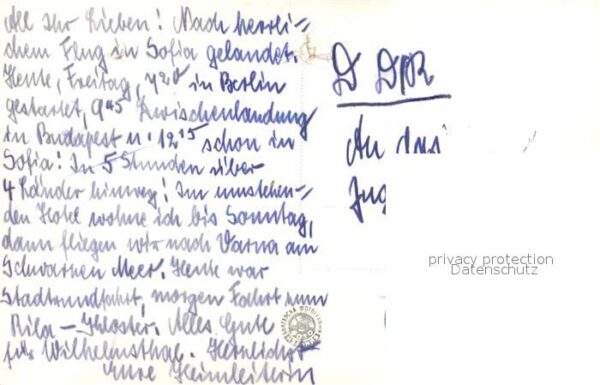 All Ihr Lieben! Nach herrli=
chem Flug in Sofia gelandet.
Heute, Freitag, 7²⁰ in Berlin
gestartet, 9⁴⁵ Zwischenlandung
in Budapest u. 12¹⁵ schon in
Sofia! In 5 Stunden über
4 Länder hinweg! Im umstehen=
den Hotel wohne ich bis Sonntag,
dann fliegen wir nach Varna am
Schwarzen Meer. Heute war
Stadtrundfahrt, morgen Fahrt zum
Rila-Kloster. Alles Gute
für Wilhelmsthal. Herzlichst
Eure Heimleiterin
D DDR
An
Jug
privacy protection
Datenschutz